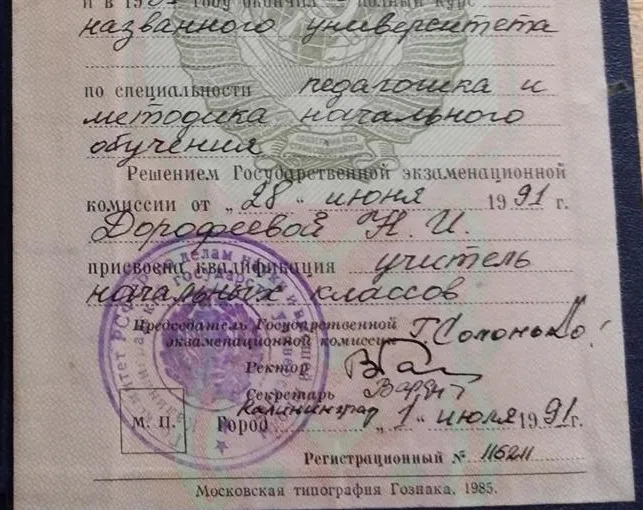 и в 19 году окончил полный курс
названного университета
по специальности педагогика и
методика начального
обучения
Решением Государственной экзаменационной
комиссии от „28“ июня 1991 г.
Дорофеевой Н. И.
присвоена квалификация учитель
начальных классов
Председатель Государственной
экзаменационной комиссии
Ректор
Секретарь
М. П. Город Калининград „1“ июля 1991г.
Регистрационный № 115211
Московская типография Гознака. 1985.